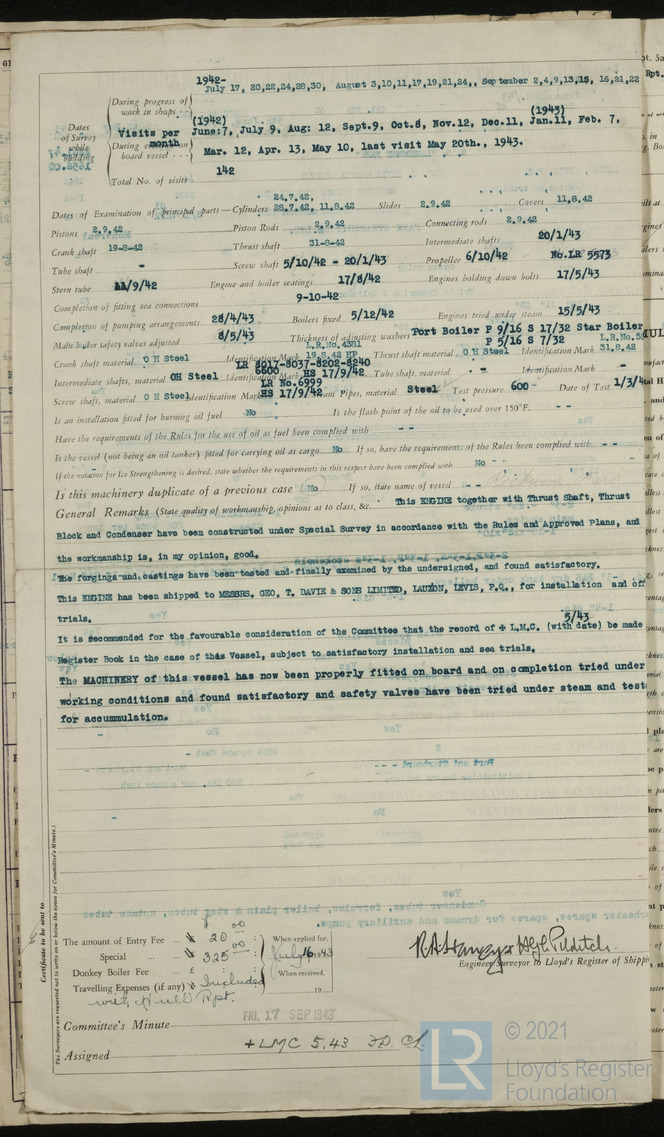 1942-
July 17, 20,22,24,28,30, August 3,10,11,17,19,21,24,, September 2,4,9,13,15, 16,21,22
During progress of work in shops - -
(1942) (1943)
Dates of Survey while building
Visits per month
June:7, July 9, Aug: 12, Sept.9, Oct.8, Nov.12, Dec.11, Jan.11, Feb. 7,
During erection on board vessel - - -
Mar. 12, Apr. 13, May 10, last visit May 20th., 1943.
Total No. of visits 142
24.7.42,
Dates of Examination of principal parts—Cylinders 28.7.42, 11.8.42 Slides 2.9.42 Covers 11.8.42
Pistons 2.9.42 Piston Rods 2.9.42 Connecting rods 2.9.42
Crank shaft 19-8-42 Thrust shaft 31-8-42 Intermediate shafts 20/1/43
Tube shaft - Screw shaft 5/10/42 - 20/1/43 Propeller 6/10/42 No.LR 5573
Stern tube 11/9/42 Engine and boiler seatings 17/8/42 Engines holding down bolts 17/5/43
Completion of fitting sea connections 9-10-42
Completion of pumping arrangements 28/4/43 Boilers fixed 5/12/42 Engines tried under steam 15/5/43
Main boiler safety valves adjusted 8/5/43 Thickness of adjusting washers Port Boiler P 9/16 S 17/32 Star Boiler
P 5/16 S 7/32
L.R.No.4381 L.R.No.55
Crank shaft material O H Steel Identification Mark 19.8.42 HP Thrust shaft material O H Steel Identification Mark 31.8.42
LR 8017-8037-8202-8240
6600
Intermediate shafts, material OH Steel Identification Marks HS 17/9/42 Tube shaft, material - - Identification Mark -
LR No.6999
Screw shaft, material O H Steel Identification Mark HS 17/9/42 Steam Pipes, material Steel Test pressure 600 - Date of Test 1/3/4
Is an installation fitted for burning oil fuel No Is the flash point of the oil to be used over 150°F. - -
Have the requirements of the Rules for the use of oil as fuel been complied with - -
Is the vessel (not being an oil tanker) fitted for carrying oil as cargo No If so, have the requirements of the Rules been complied with - -
If the notation for Ice Strengthening is desired, state whether the requirements in this respect have been complied with No - -
Is this machinery duplicate of a previous case No If so, state name of vessel - -
General Remarks (State quality of workmanship, opinions as to class, &c. This ENGINE together with Thrust Shaft, Thrust
Block and Condenser have been constructed under Special Survey in accordance with the Rules and Approved Plans, and
the workmanship is, in my opinion, good.
The forgings and castings have been tested and finally examined by the undersigned, and found satisfactory.
This ENGINE has been shipped to MESSRS, GEO, T. DAVIE & SONS LIMITED, LAUZON, LEVIS, P.Q., for installation and off
trials.
5/43
It is recommended for the favourable consideration of the Committee that the record of + L.M.C. (with date) be made
Register Book in the case of this Vessel, subject to satisfactory installation and sea trials.
The MACHINERY of this vessel has now been properly fitted on board and on completion tried under
working conditions and found satisfactory and safety valves have been tried under steam and test
for accummulation.
Certificate to be sent to
(The Surveyors are requested not to write on or below the space for Committee's Minute.)
The amount of Entry Fee ... $ 20.00 When applied for,
Special ... $ 325.00 July 16 1943
Donkey Boiler Fee ... £ : : When received,
Travelling Expenses (if any) $ Included 19
with Hull Rpt.
R.A. Hanney Hgh. Pilditch.
Engineer Surveyor to Lloyd's Register of Shipping
Committee's Minute FRI. 17 SEP 1943
Assigned + LMC 5.43 F.D. CL.
LR © 2021
Lloyd's Register
Foundation